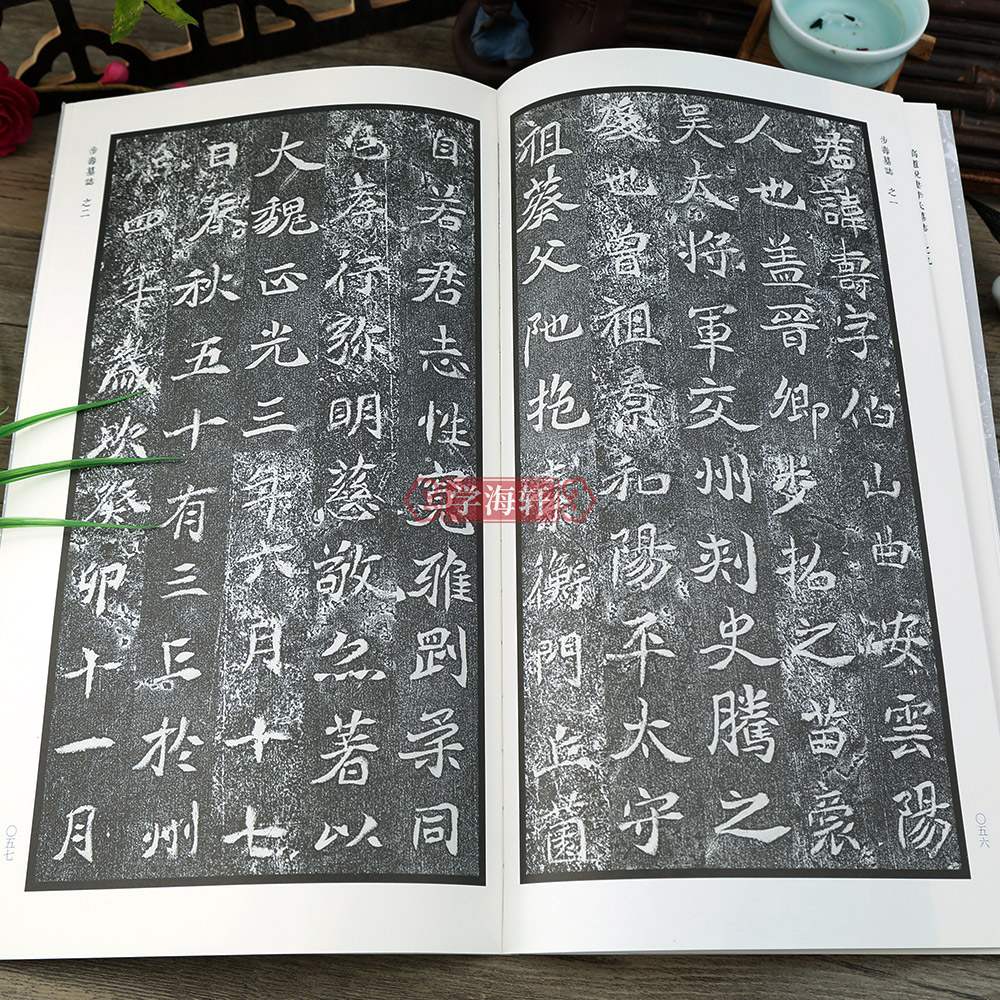 步壽墓誌 之一
君諱壽字伯山曲安雲陽
人也盖晉卿步招之苗裔
吴太将軍交州刾史騰之
後也曾祖意和陽平太守
祖葵父阤抱衡門丘薗
〇五六
自若君志性寛雅剛柔同
色孝行弥明慈敬著以
大魏正光三年六月十七
日春秋五十有三亡於州
治四年歲次癸卯十一月
步壽墓誌 之二
〇五七
学海轩